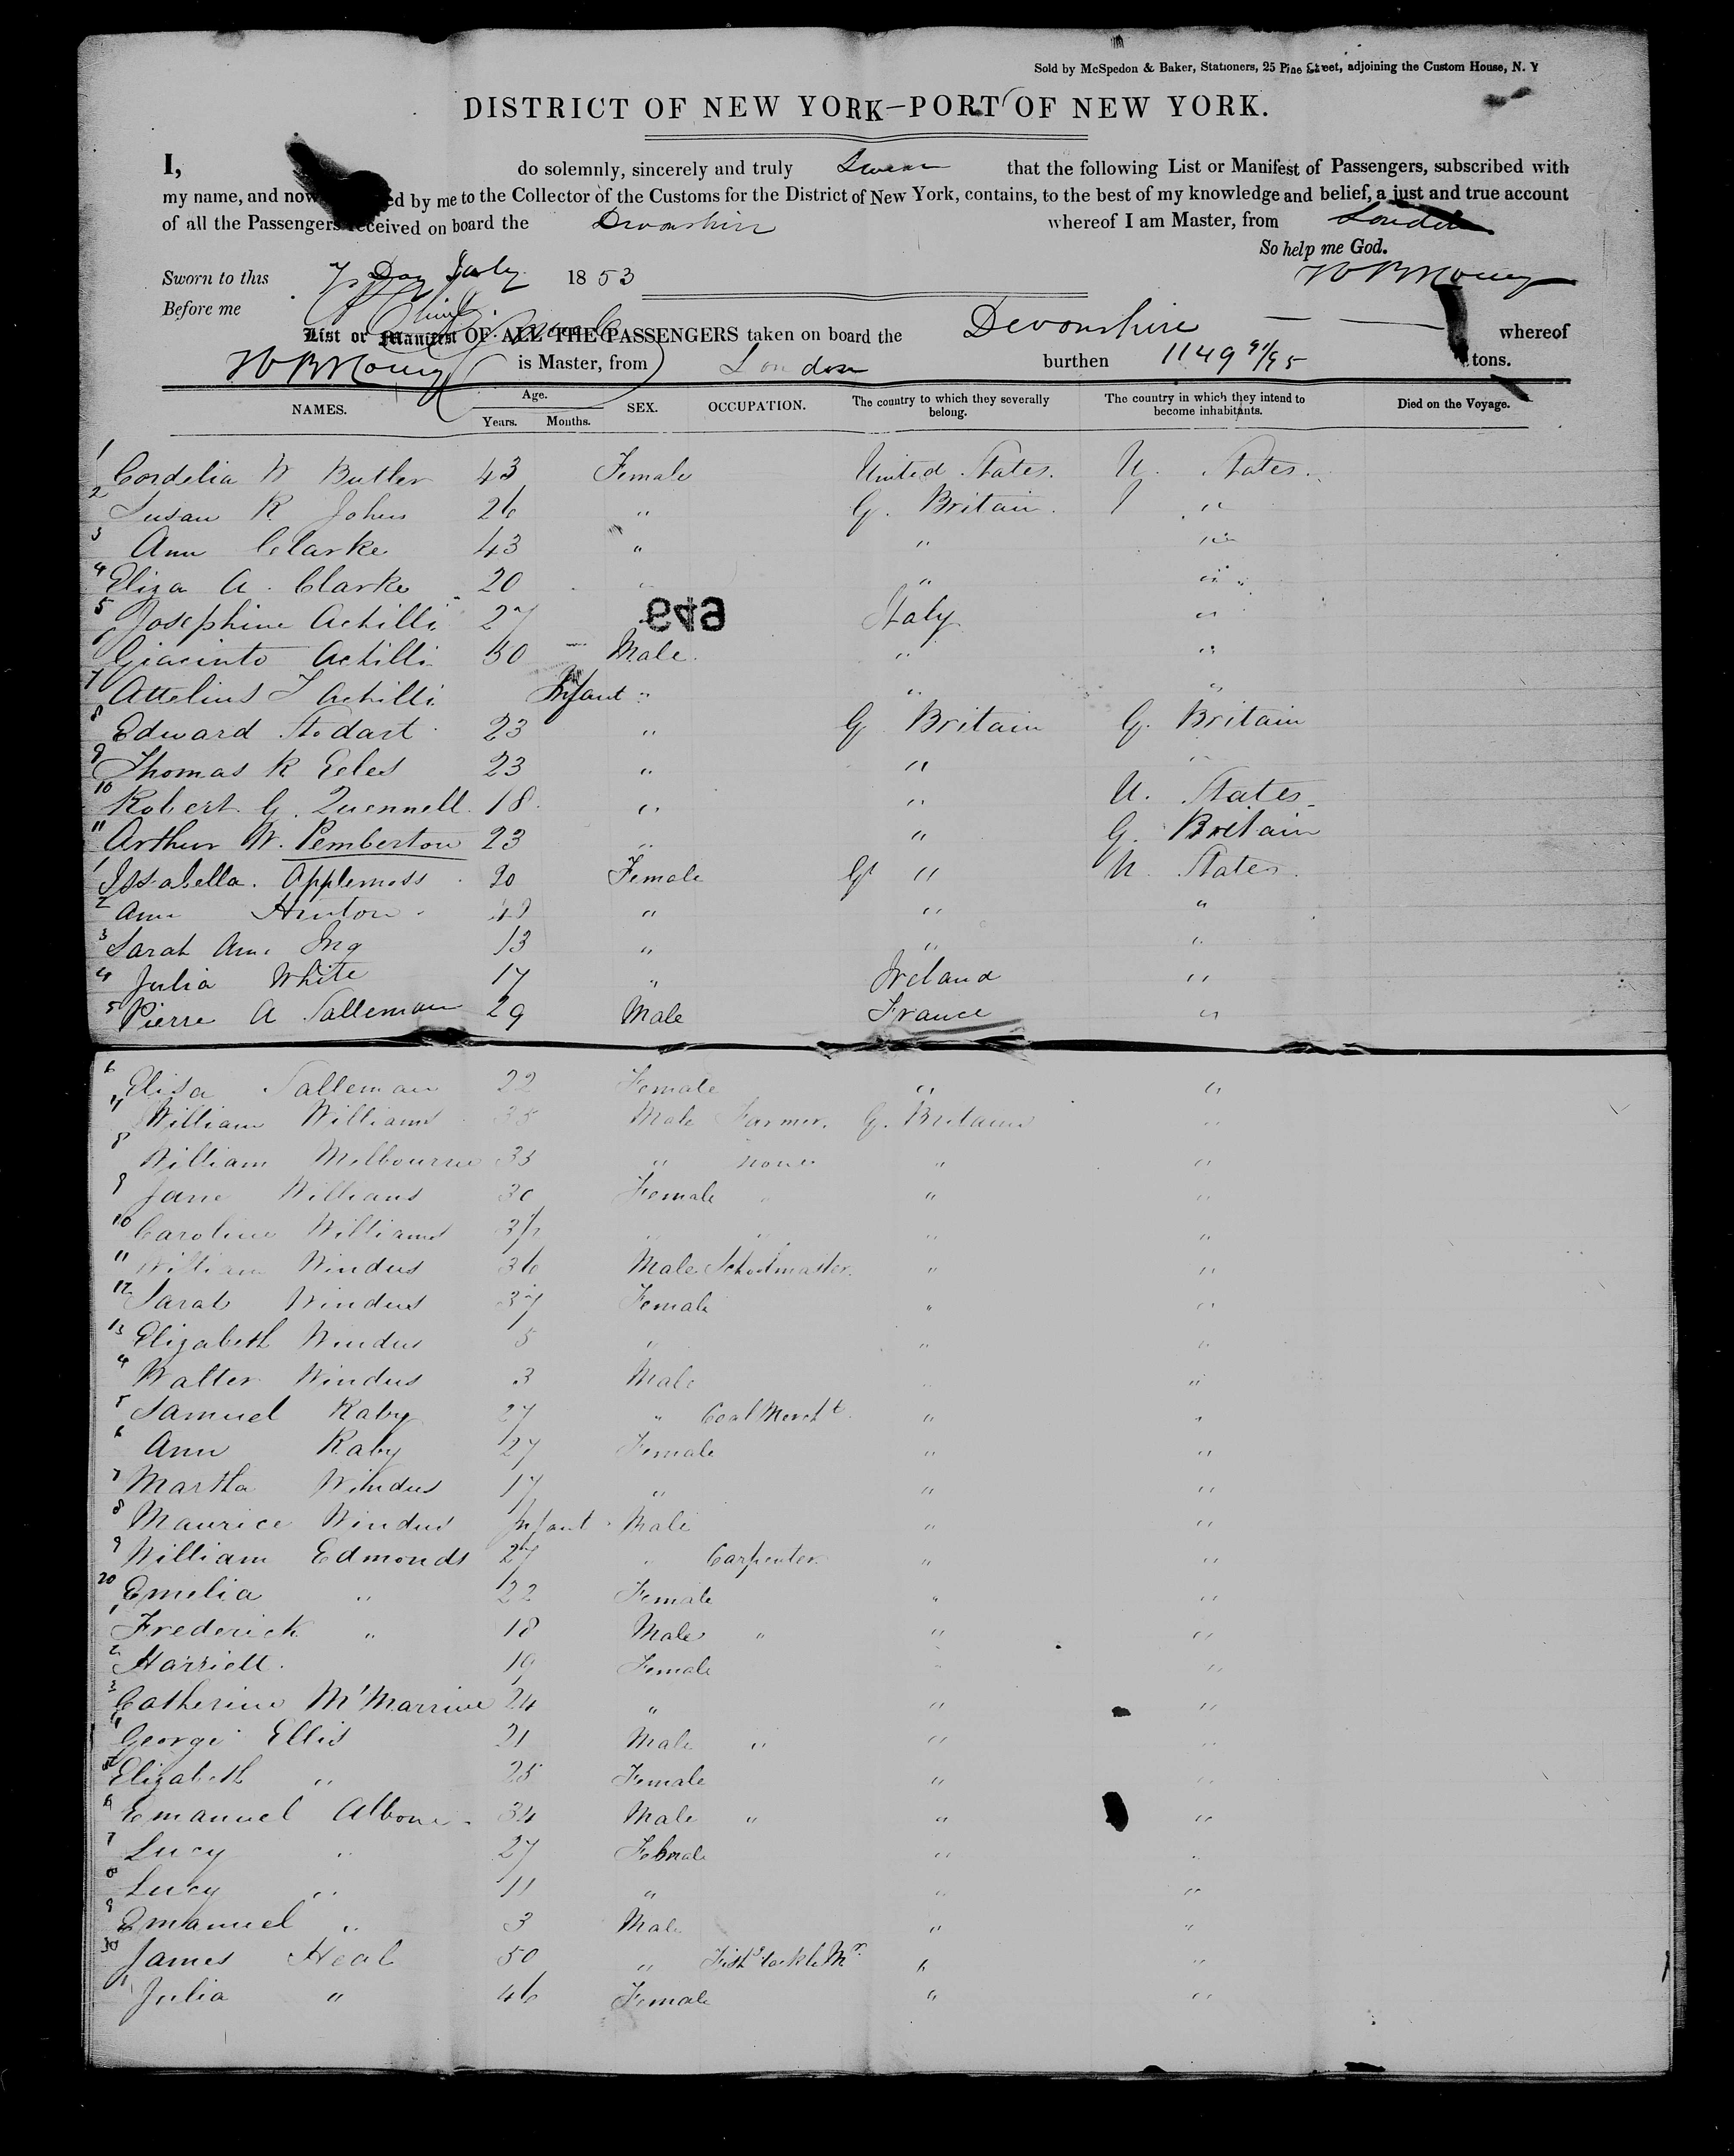 Sold by McSpedon & Baker, Stationers, 25 Pine Street, adjoining the Custom House, N. Y
DISTRICT OF NEW YORK—PORT OF NEW YORK.
I, do solemnly, sincerely and truly Swear that the following List or Manifest of Passengers, subscribed with
my name, and now ed by me to the Collector of the Customs for the District of New York, contains, to the best of my knowledge and belief, a just and true account
of all the Passengers received on board the Devonshire whereof I am Master, from London
So help me God.
Sworn to this 7 Day July 1853
Before me
List or Manifest OF ALL THE PASSENGERS taken on board the Devonshire whereof
is Master, from London burthen 1149 91/95 tons.
NAMES. Age. Years. Months. SEX. OCCUPATION. The country to which they severally belong. The country in which they intend to become inhabitants. Died on the Voyage.
1 Cordelia W Butler 43 Female United States. U. States.
2 Susan R. Johns 26 " G. Britain. "
3 Ann Clarke 43 " " "
4 Eliza A. Clarke 20 " " "
5 Josephine Achilli 27 Italy "
649
6 Giacinto Achilli 50 Male " "
7 Attelius J Achilli Infant " " "
8 Edward Stodart 23 " G Britain G. Britain
9 Thomas R Eeles 23 " " "
10 Robert G. Quennell 18 " " U. States
11 Arthur W. Pemberton 23 " " G. Britain
1 Issabella. Applemess 20 Female G " U. States.
2 Ann Hinton " " "
3 Sarah Ann Ing 13 " " "
4 Julia White 17 " Ireland "
5 Pierre A Salleman 29 Male France "
6 Elisa Salleman 22 Female " "
7 William Williams 35 Male Farmer. G. Britain "
8 William Melbourne 35 " None " "
9 Jane Williams 30 Female " " "
10 Caroline Williams " " " "
11 William Windus 36 Male Schoolmaster. " "
12 Sarah Windus 37 Female " "
13 Elizabeth Windus 5 " " "
4 Walter Windus 3 Male " "
5 Samuel Raby 27 " Coal Mercht " "
6 Ann Raby 27 Female " "
7 Martha Windus 17 " " "
8 Maurice Windus Infant Male " "
9 William Edmonds 27 " Carpenter " "
20 Emelia " 22 Female " "
1 Frederick " 18 Male " " "
2 Harriett. 19 Female " "
3 Catherine 24 " " "
4 George Ellis 21 Male " " "
5 Elizabeth " 25 Female " "
6 Emanuel Albone 34 Male " " "
7 Lucy " 27 Female " "
8 Lucy " 11 " " "
9 Emanuel " 3 Male " "
30 James Heal 50 " Fishg tackle Mr " "
1 Julia " 46 Female " "